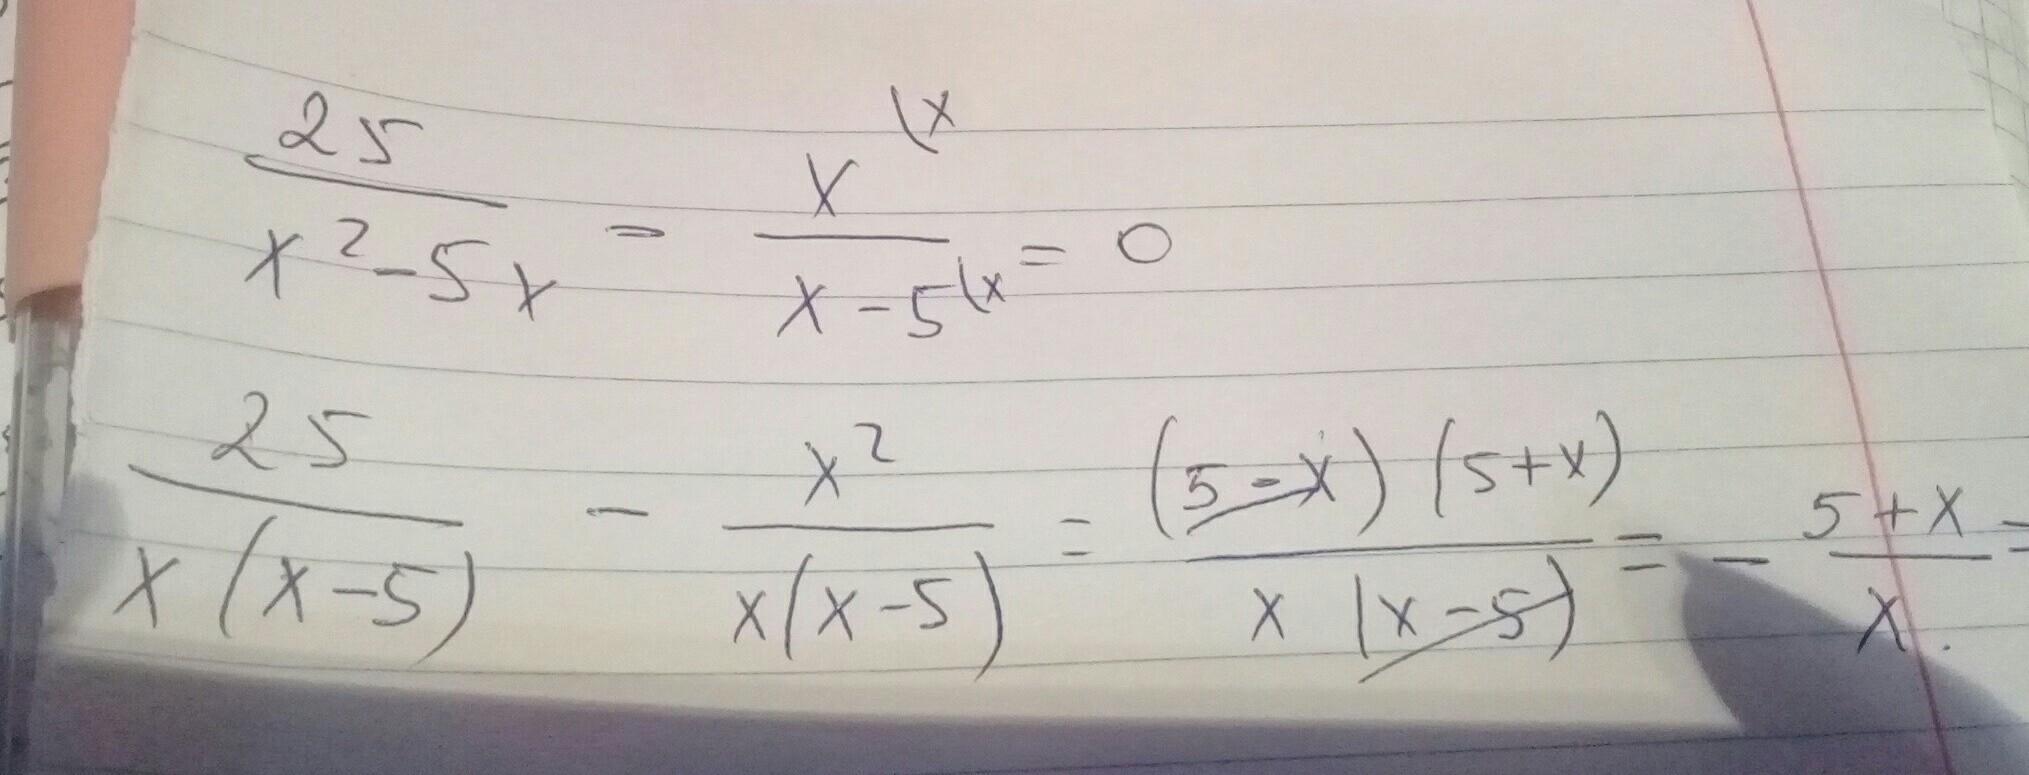 25/(x²-5x) - x\x/(x-5\x) = 0
25/(x(x-5)) - x²/(x(x-5)) = (5-x)(5+x)/(x(x-5)) = - (5+x)/x. =